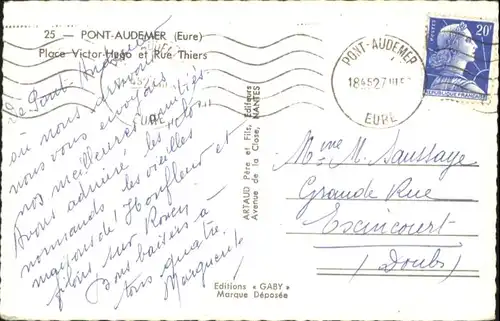 25 - PONT-AUDEMER (Eure)
Place Victor-Hugo et Rue Thiers
De Pont Audemer
où nous
nous vous envoyons
nos meilleures amitiés.
Avons admiré les
normands les vieilles
maisons d'Honfleur et
filons sur Rouen
Bons baisers à
tous quatre.
Marguerite
ARTAUD Père et Fils, Editeurs
Avenue de la Close, NANTES
Editions « GABY »
Marque Déposée
PONT-AUDEMER
EURE
20F
POSTES
REPUBLIQUE FRANÇAISE
Mme M. Saussaye
Grande Rue
Exincourt
(Doubs)